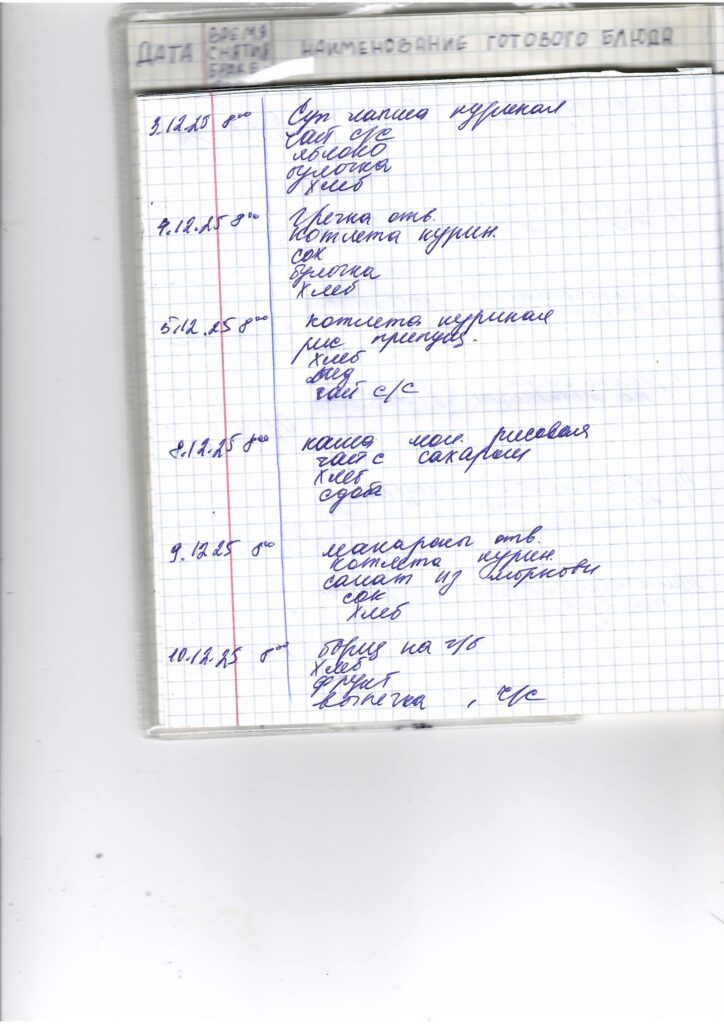 ДАТА ВРЕМЯ СНЯТИЯ БРАКЕ НАИМЕНОВАНИЕ ГОТОВОГО БЛЮДА
3.12.25 8⁰⁰ Суп лапша куриная
чай с/с
яблоко
булочка
хлеб
4.12.25 8⁰⁰ Гречка отв.
котлета курин.
сок
булочка
хлеб
5.12.25 8⁰⁰ котлета куриная
рис припущ.
хлеб
чай с/с
8.12.25 8⁰⁰ каша мол. рисовая
чай с сахаром
хлеб
сдоба
9.12.25 8⁰⁰ макароны отв.
котлета курин.
салат из моркови
сок
хлеб
10.12.25 8⁰⁰ борщ на к/б
хлеб
фрукт
выпечка , ч/с